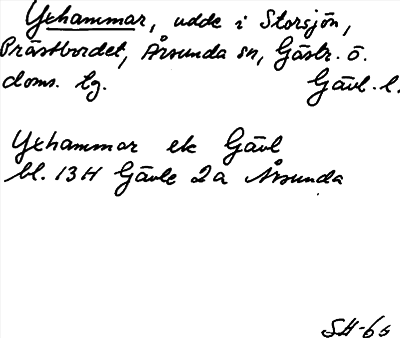 Yxhammar, udde i Storsjön,
Prästbordet, Årsunda sn, Gästr. ö.
doms. tg. Gävl. l.
Yxhammar ek Gävl
bl. 13H Gävle 2a Årsunda
SH-66